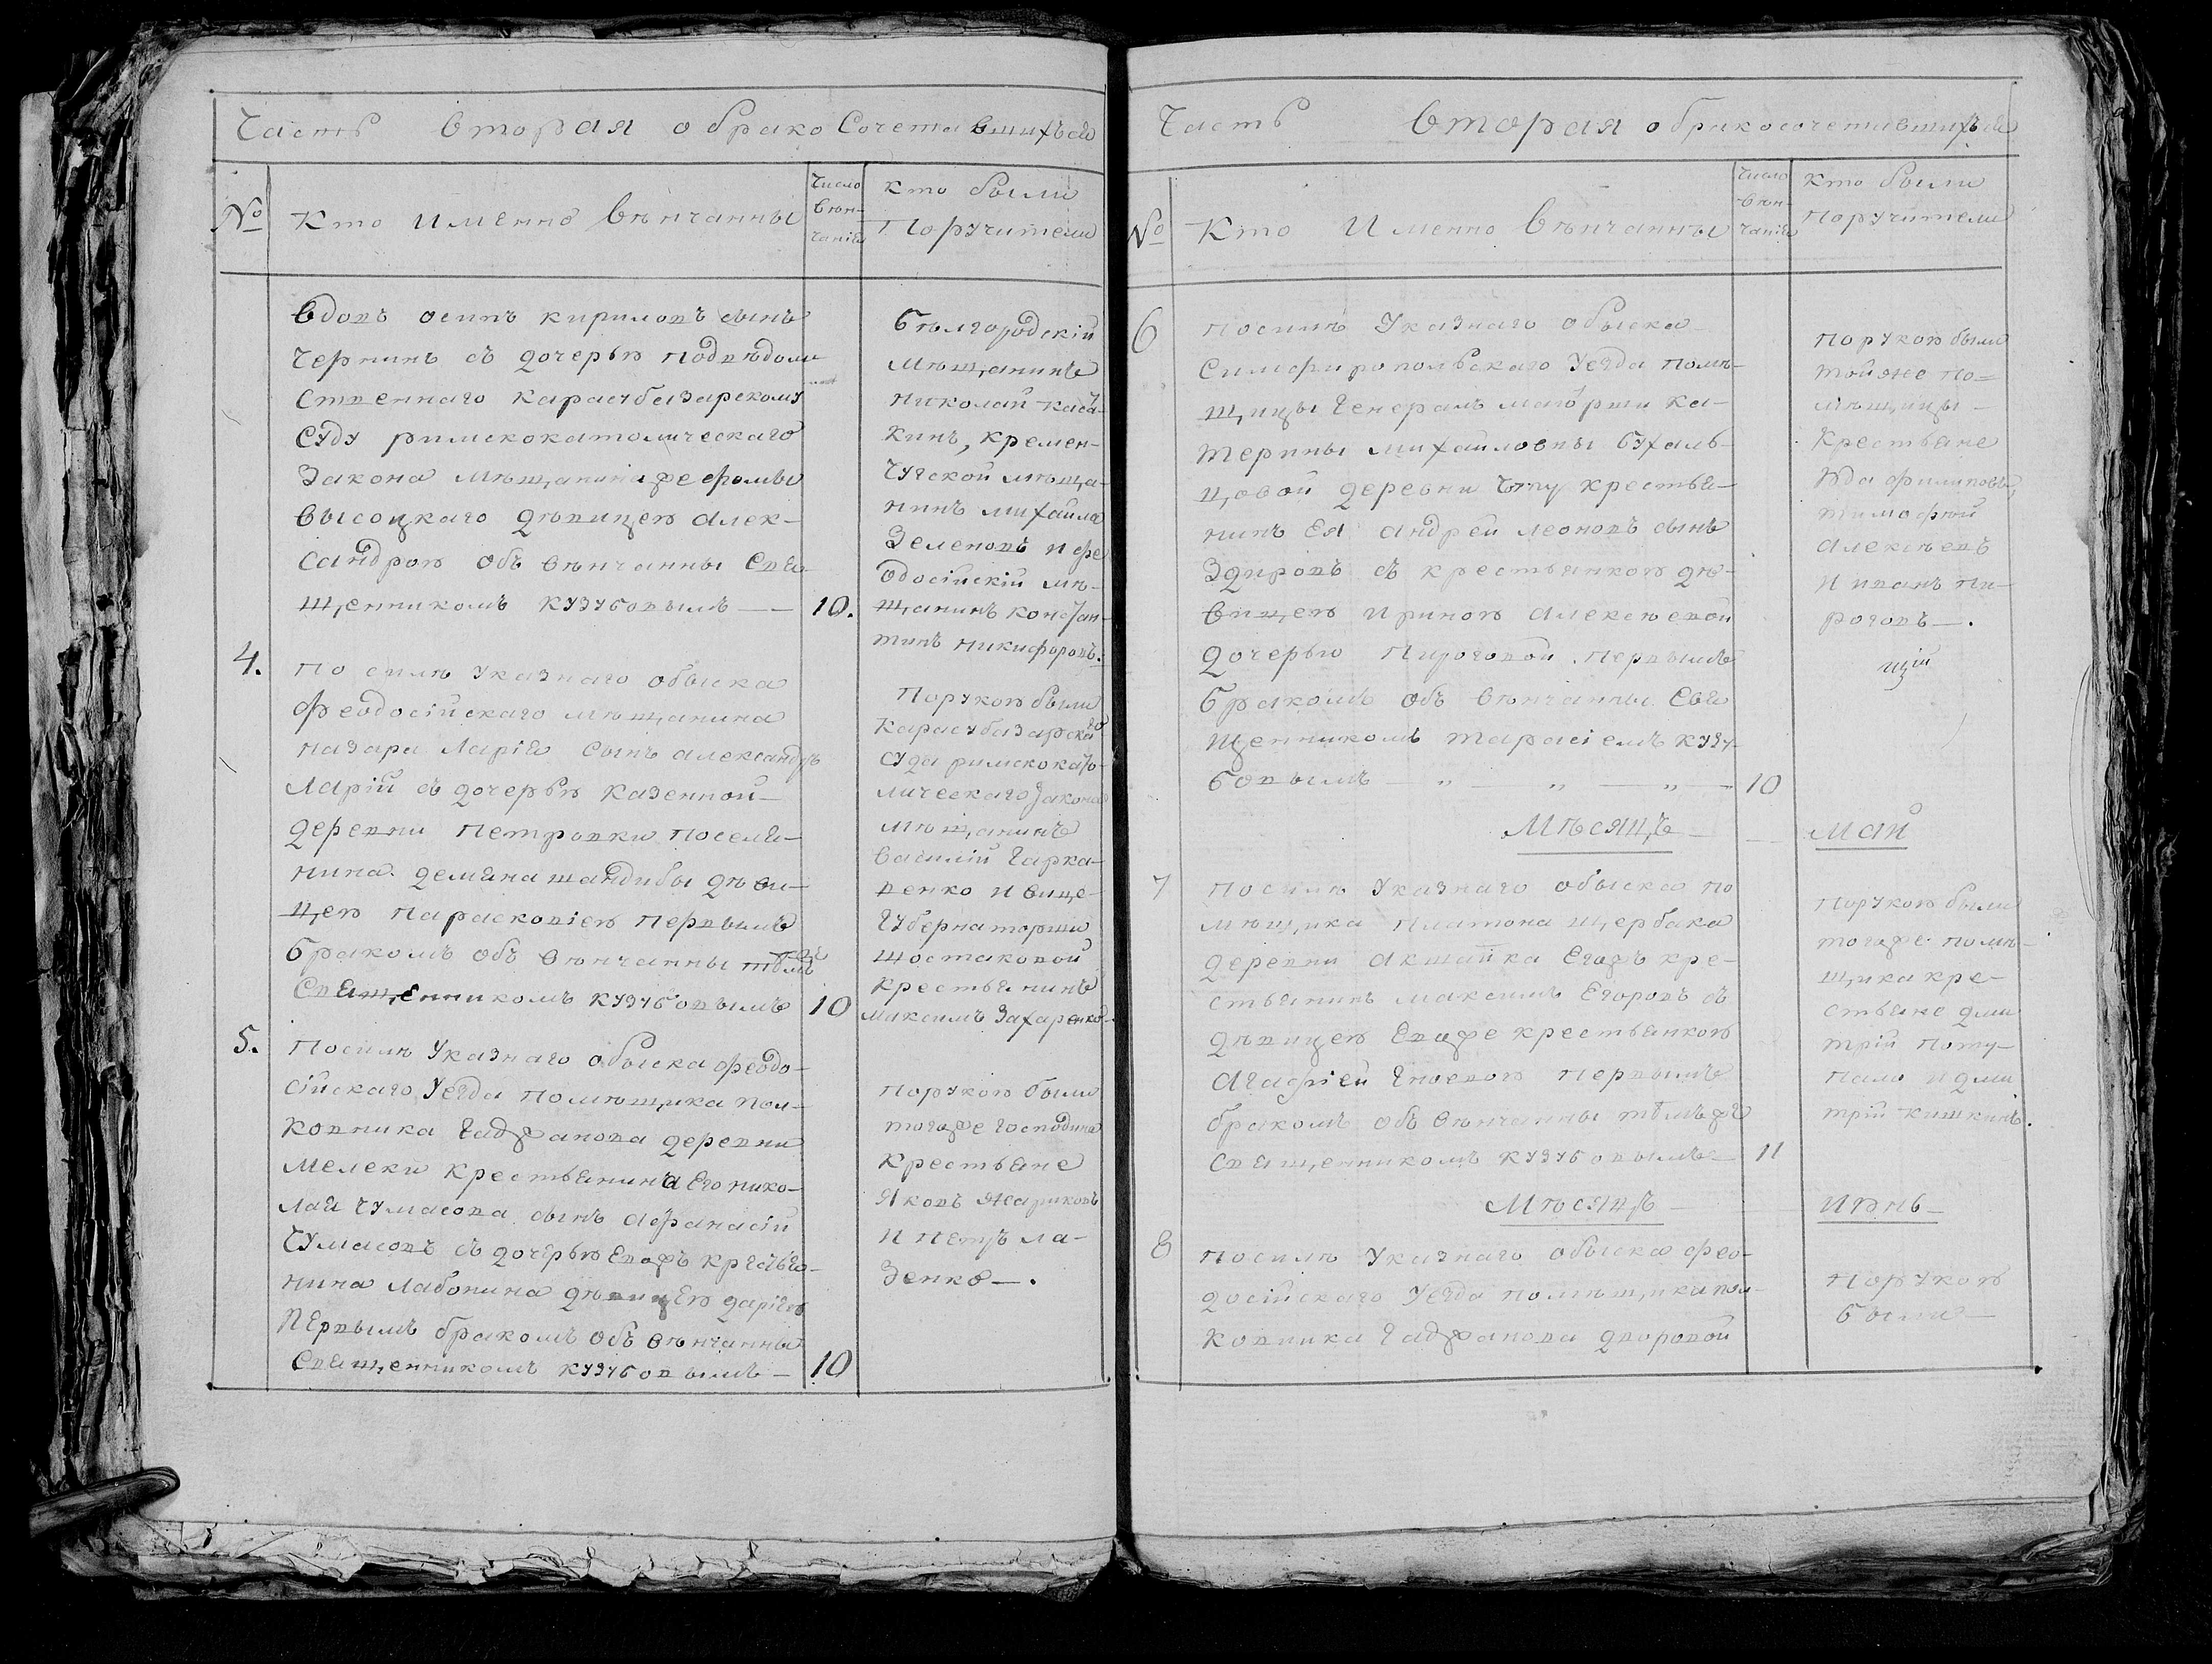 Часть вторая о брако Сочетавшихъся
№
Кто Именно вѣнчанны
Число вѣн-чанія
Кто были Поручители
вдовъ осипъ кириловъ сынъ
Чернинъ съ дочерью подвѣдом-
ственнаго карасубазарскому
Суду римскокатолическаго
Закона мѣщанина
высоцкаго дѣвицею алек-
сандрою объ вѣнчанны Свя-
щенникомъ кузубовымъ —
10.
бѣлгородскій
мѣщанинъ
николай
кременъ-
чугской мѣща-
нинъ михайла
Зеленовъ и фе
одосійскій мѣ-
щанинъ констан-
тинъ никифоровъ.
4.
по силѣ указнаго обыска
феодосійскаго мѣщанина
назара Ларія сынъ александръ
Ларій съ дочерью казенной
деревни петровки поселя-
нина демяна шандибы дѣви-
цею параскевіею первымъ
бракомъ объ вѣнчанны тѣмъ же
Священникомъ кузубовымъ
10
порукою были
карасубазарскаго
суда римскокато-
лическаго закона
мѣщанинъ
василій гарка-
венко и вице-
губернаторши
шостаковой
крестьянинъ
максимъ Захаренко.
5.
посилѣ указнаго обыска феодо-
сійскаго уезда помѣщика пол-
ковника гаджанова деревни
мелеки крестьянина Его нико-
лая чумасова сынъ афанасій
Чумасовъ съ дочерью Евожъ крестья-
нина лабонина дѣвицею даріею
первымъ бракомъ объ вѣнчанны
Священникомъ кузубовымъ —
10
порукою были
тогоже господина
крестьяне
яковъ жариковъ
и петръ ла-
зенко —.
Часть вторая о бракосочетавшихъся
№
Кто Именно вѣнчанны
Число вѣн-чанія
Кто были поручители
6
посилѣ указнаго обыска
Симфиропольскаго уезда помѣ-
щицы генералъ маіорши ка-
терины михайловны бухаль-
цовой деревни крестья-
нинъ Ея андрей леоновъ сынъ
Здировъ съ крестьянкою дѣ-
вицею ириною алексѣевой
дочерью пироговой первымъ
бракомъ объ вѣнчанны Свя
щенникомъ тарасіемъ кузу-
бовымъ — „ — „ — „ —
10
порукою были
тойже по=
мѣщицы —
крестьяне
филиповъ,
тимофѣй
алексѣевъ
и иванъ пи-
роговъ —.
цій
Мѣсяцъ — май
7
посилѣ указнаго обыска по
мѣщика платона щербака
деревни акшайка Егожъ кре-
стьянинъ максимъ Егоровъ съ
дѣвицею Евоже крестьянкою
агафіей гноевою первымъ
бракомъ объ вѣнчанны тѣмъже
Священникомъ кузубовымъ —
11
порукою были
тогоже помѣ-
щика кре-
стьяне дми
трій поту-
пало и дми
трій кишкинъ.
Мѣсяцъ — июнь —
8
посилѣ указнаго обыска фео-
досійскаго уезда помѣщика пол-
ковника гаджанова дворовой
порукою
были —